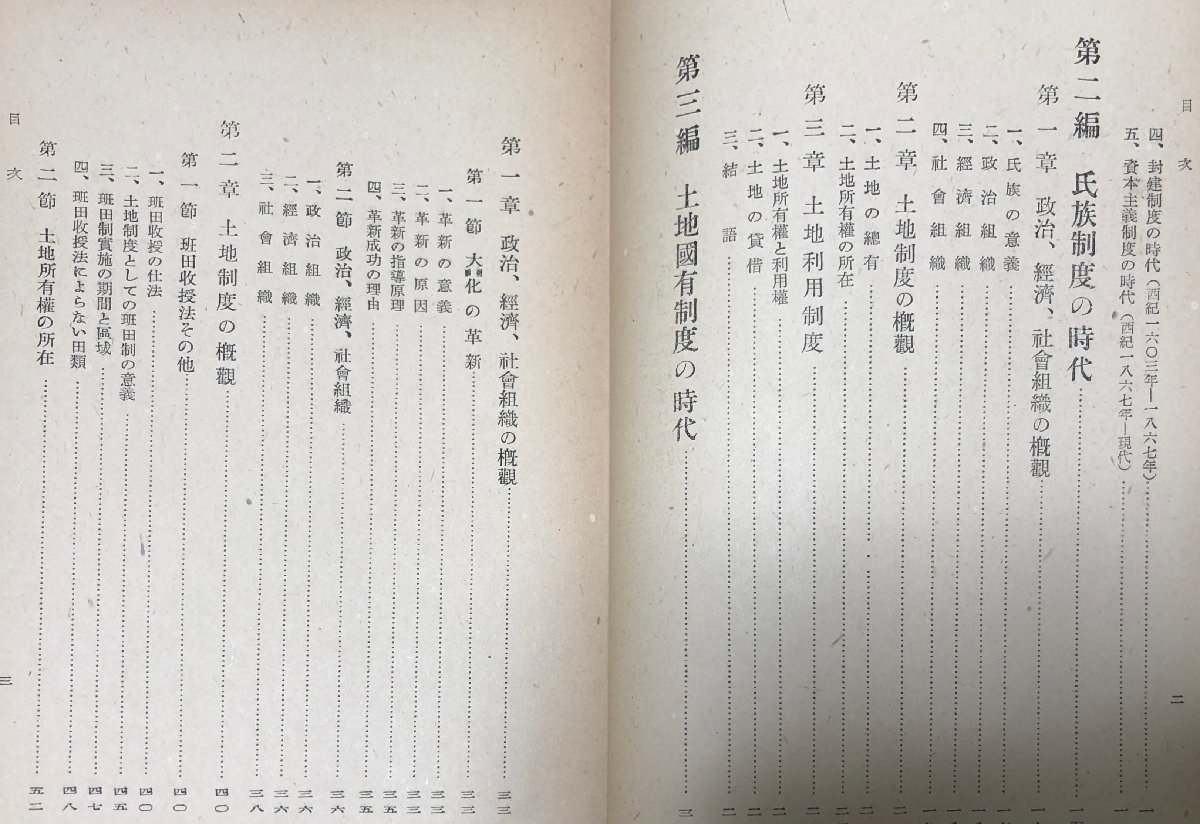 目次
二
四、封建制度の時代(西紀一六〇三年—一八六七年)
五、資本主義制度の時代(西紀一八六七年—現代)
第二編 氏族制度の時代
第一章 政治、經濟、社會組織の槪觀
一、氏族の意義
二、政治組織
三、經濟組織
四、社會組織
第二章 土地制度の槪觀
一、土地の總有
二、土地所有權の所在
第三章 土地利用制度
一、土地所有權と利用權
二、土地の貸借
三、結語
第三編 土地國有制度の時代
第一章 政治、經濟、社會組織の槪觀 三三
第一節 大化の革新 三三
一、革新の意義 三三
二、革新の原因 三三
三、革新の指導原理 三五
四、革新成功の理由 三五
第二節 政治、經濟、社會組織 三六
一、政治組織 三六
二、經濟組織 三六
三、社會組織 三八
第二章 土地制度の槪觀 四〇
第一節 班田收授法その他 四〇
一、班田收授の仕法 四〇
二、土地制度としての班田制の意義 四五
三、班田制實施の期間と區域 四七
四、班田收授法によらない田類 四八
第二節 土地所有權の所在 五二
目次
三